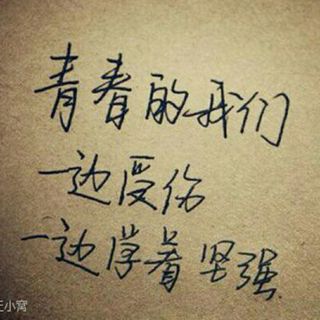 青春的我们
一边受伤
一边学着坚强
小窝